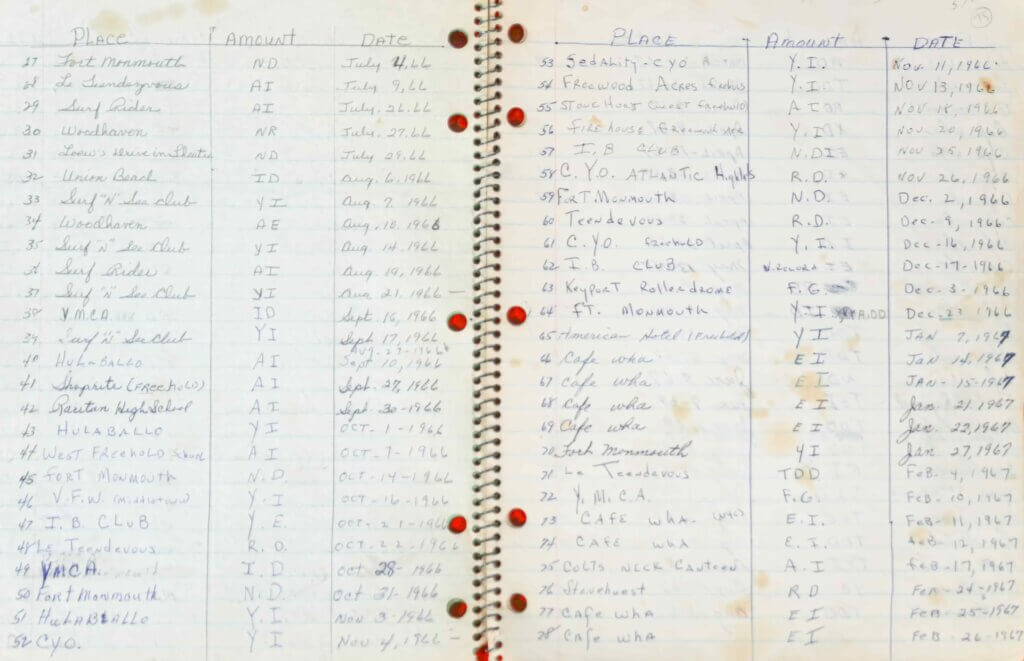 PLACE AMOUNT DATE
27 Fort Monmouth ND July 4, 66
28 Le Teendezvous AI July 9, 66
29 Surf Rider AI July 26.66
30 Woodhaven NR July. 27.66
31 Loew's drive in Theatre ND July 29.66
32 Union Beach ID Aug. 6, 1966
33 Surf "N" Sea Club YI Aug. 7, 1966
34 Woodhaven AE Aug. 10. 1966
35 Surf "N" Sea Club YI Aug. 14. 1966
Surf Rider AI Aug. 19, 1966
37 Surf "N" Sea Club YI Aug. 21. 1966
38 Y.M.C.A. ID Sept. 16, 1966
39 Surf "N" Sea Club YI Sept 17, 1966
40 HULABALLO AI Sept 10, 1966
41 Shoprite (FREEHOLD) AI Sept. 27, 1966
42 Raritan High School AI Sept. 30-1966
43 HULABALLO YI OCT-1-1966
44 WEST FREEHOLD School AI OCT-7-1966
45 FORT MONMOUTH N.D. OCT-14-1966
46 V.F.W. (middletown) Y.I OCT-16-1966
47 I.B. CLUB Y.E. OCT-21-1966
48 LE Teendevous R.D. OCT-22-1966
49 YMCA. I.D OCT 28-1966
50 FORT MONMOUTH N.D. OCT 31-1966
51 HULABALLO Y.I. NOV 3-1966
52 C.Y.O. Y.I NOV 4, 1966
PLACE AMOUNT DATE
53 Sedability-CYO Y.I Nov. 11, 1966
54 Freewood Acres Y.I NOV 13, 1966
55 Stone Hurst AI NOV 18, 1966
56 firehouse Y.I NOV 20, 1966
57 I.B CLUB N.DI NOV 25, 1966
58 C.Y.O. ATLANTIC Highlds R.D. NOV 26, 1966
59 FORT. MONMOUTH N.D. Dec. 2, 1966
60 Teendevous R.D. Dec-9, 1966
61 C.Y.O. FREEHOLD Y.I. Dec-16, 1966
62 I.B. CLUB Dec-17-1966
63 Keyport Rollerdrome F.G. Dec-3-1966
64 FT. MONMOUTH Y.I Dec. 1966
65 American Hotel (Freehold) YI JAN 7, 1967
66 Cafe wha EI JAN 14, 1967
67 Cafe wha. EI JAN-15-1967
68 Cafe wha EI Jan. 21. 1967
69 Cafe wha EI Jan. 22, 1967
70 Fort Monmouth YI Jan 27, 1967
71 Le Teendevous TDD FeB-4, 1967
72 Y.M.C.A. F.G. FeB-10, 1967
73 CAFE wha (NYC) E.I. FeB-11, 1967
74 CAFE wha E.I. FeB-12, 1967
75 COLTS NECK CANTEEN A.I FeB-17, 1967
76 Stonehurst RD Feb-24-1967
77 Cafe wha EI FeB-25-1967
78 Cafe wha EI FeB-26-1967